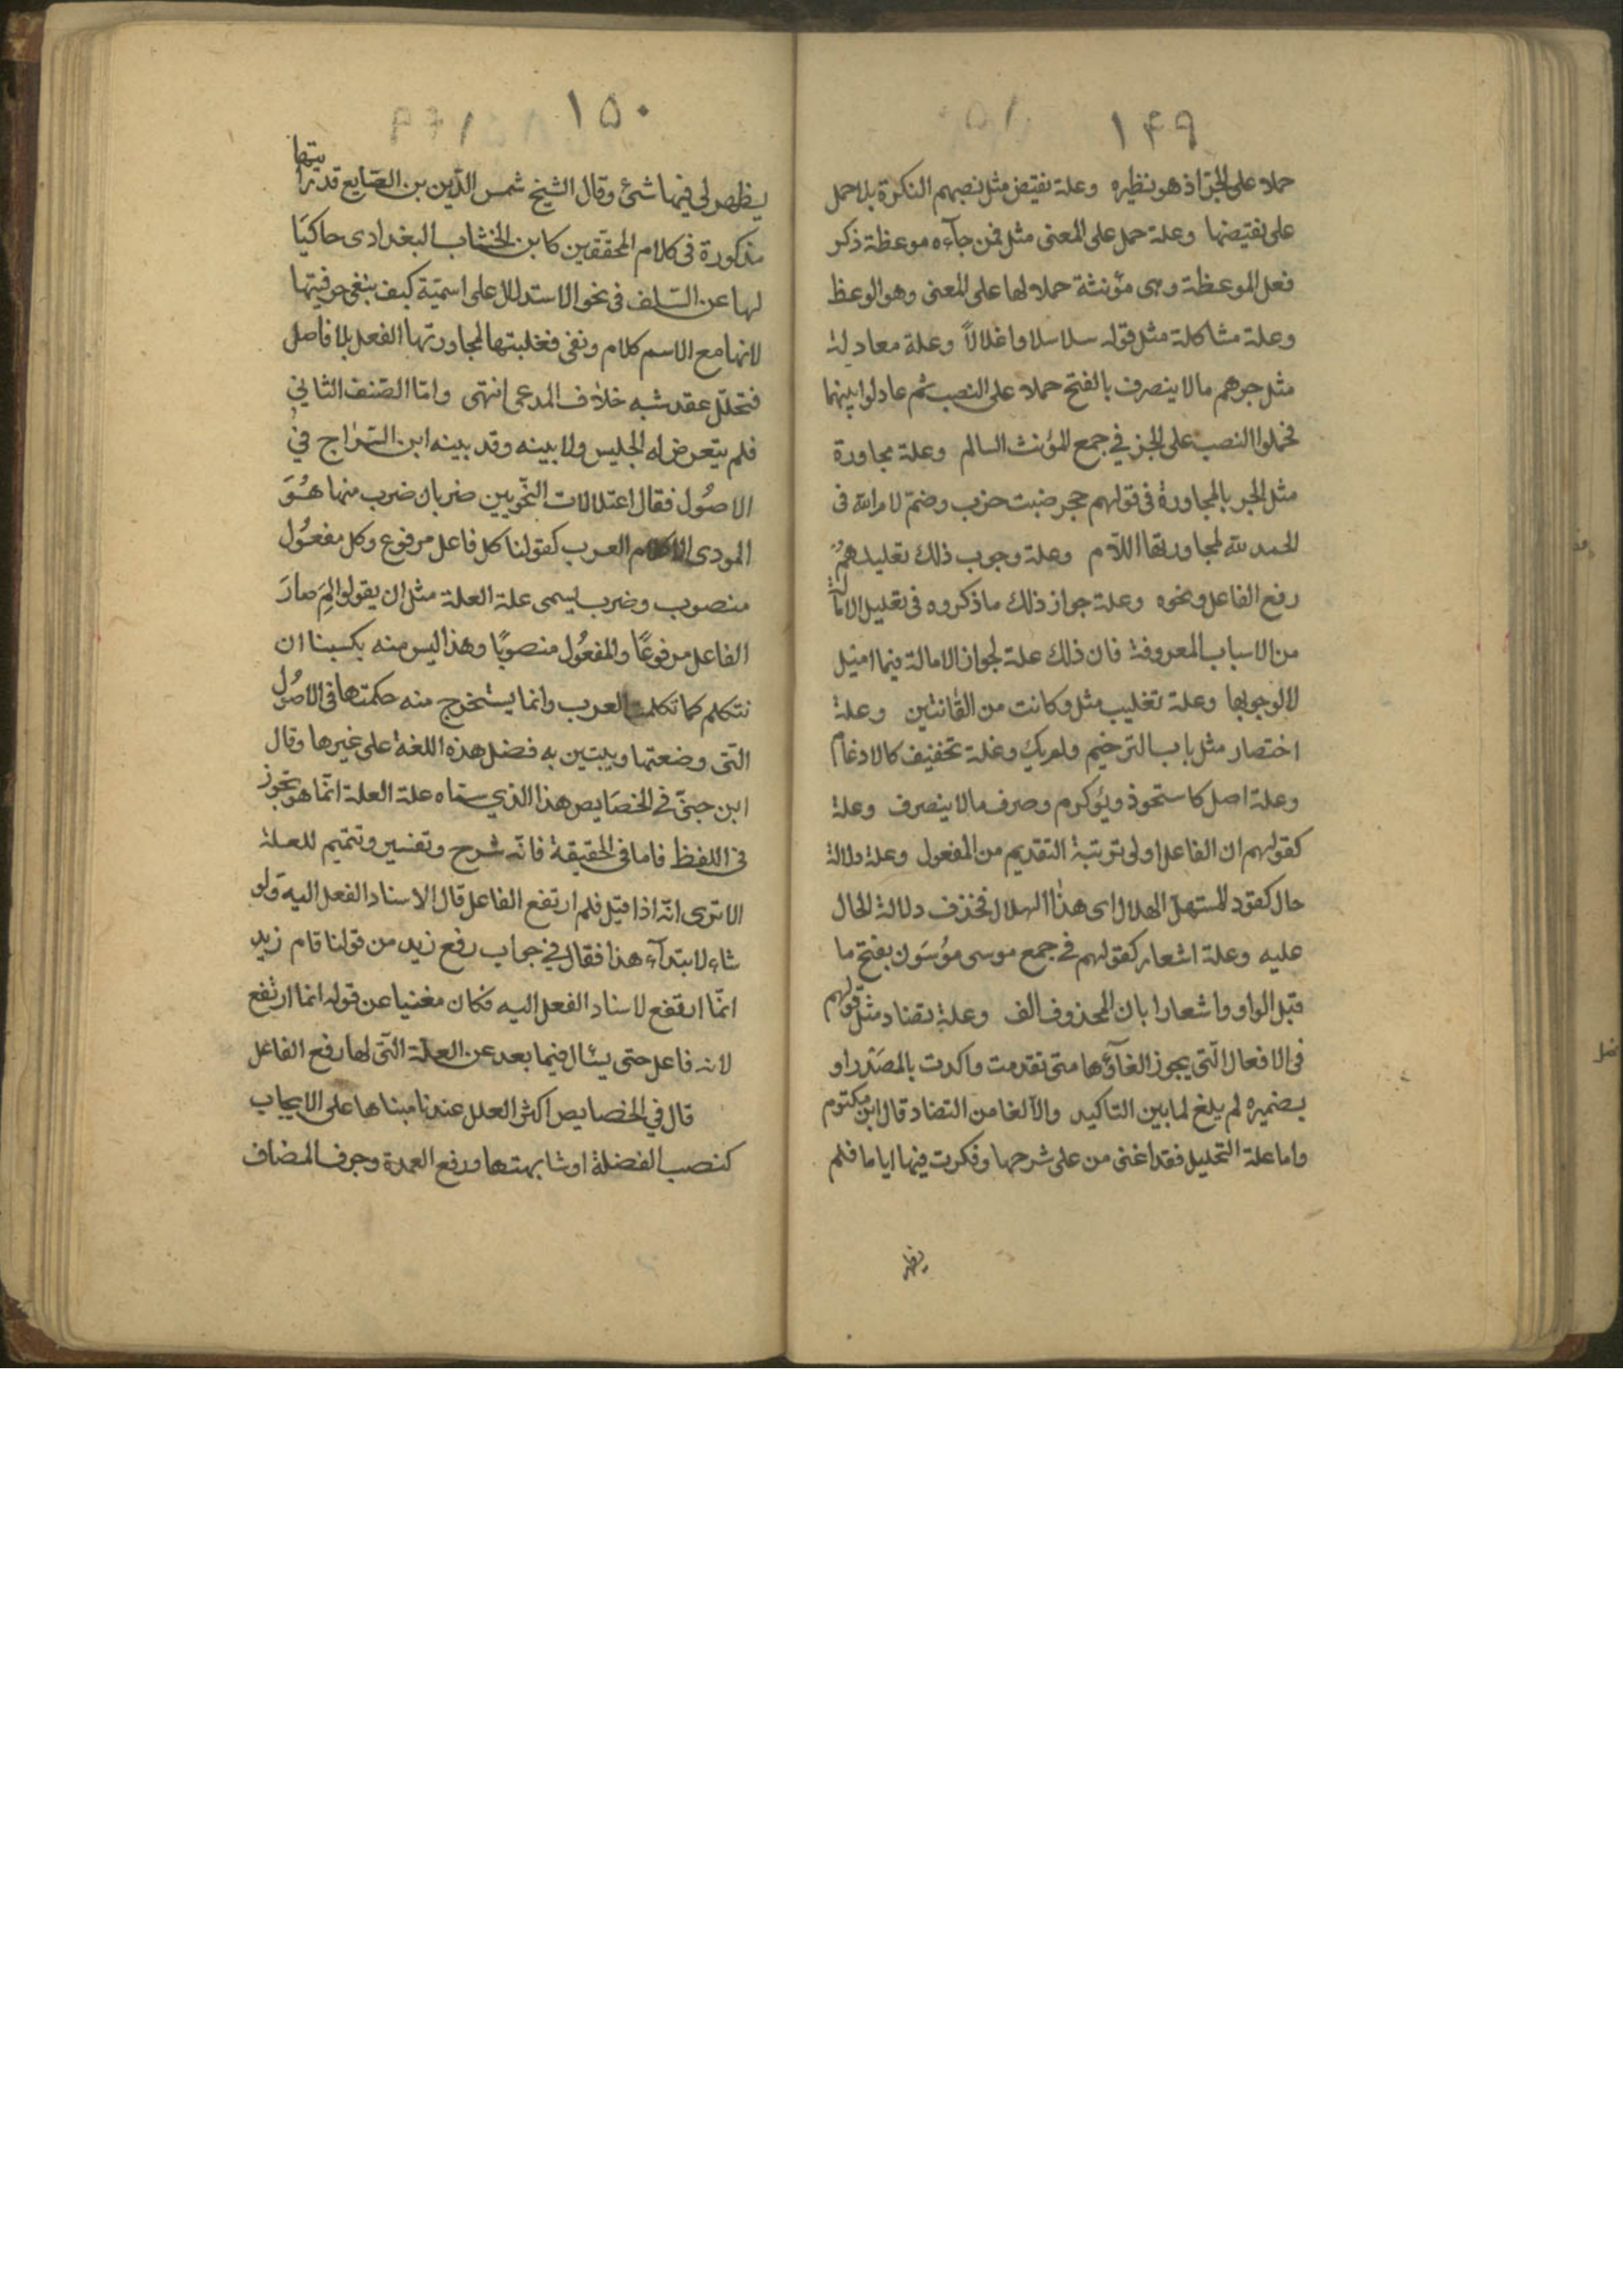 ١٤٩
حملا على الجر اذ هو نظيره وعلة نقيض مثل نصبهم النكرة بلا حمل
على نقيضها وعلة حمل على المعنى مثل فمن جآءه موعظة ذكر
فعل الموعظة وهى مؤنثة حملا لها على المعنى وهو الوعظ
وعلة مشاكلة مثل قوله سلاسلا واغلالاً وعلة معادلة
مثل جرهم مالا ينصرف بالفتح حملا على النصب ثم عادلوا بينهما
فحملوا النصب على الجر في جمع المؤنث السالم وعلة مجاورة
مثل الجر بالمجاورة فى قولهم حجر ضبت خرب وضمّ لام الله فى
الحمد لله لمجاورتها اللآم وعلة وجوب ذلك تعليلهم
رفع الفاعل ونحوه وعلة جواز ذلك ماذكروه فى تعليل الامالة
من الاسباب المعروفة فان ذلك علة لجواز الامالة فيما اميل
لالوجوبها وعلة تغليب مثل وكانت من القانتين وعلة
اختصار مثل باب الترخيم ولم يك وعلة تخفيف كالادغام
وعلة اصل كاستحوذ ويؤكرم وصرف مالا ينصرف وعلة
كقولهم ان الفاعل اولى برتبة التقديم من المفعول وعلة دلالة
حال كقود المستهل الهلال اى هذا الهلال فحذف دلالة الحال
عليه وعلة اشعار كقولهم فى جمع موسى مؤسَون بفتح ما
قبل الواو واشعارا بان المحذوف الف وعلة تضاد مثل قولهم
فى الافعال الّتى يجوز الغآؤها متى تقدمت واكدت بالمصَدر او
بضميره لم يلغ لما بين التاكيد والالغا من التضاد قال ابن مكتوم
واما علة التحليل فقد اغنى من على شرحها وفكرت فيها اياما فلم
يظهر
١٥٠
يظهر لى فيها شئ وقال الشيخ شمس الدّين بن الصّايع قد رايتها
مذكورة فى كلام المحققين كابن الخشاب البغدادى حاكيًا
لها عن السّلف فى نحو الاستدلال على اسميّة كيف بنفى حرفيتها
لانها مع الاسم كلام ونفى فعليتها لمجاورتها الفعل بلا فاصل
فتحلّل عقد شبه خلاف المدعى انتهى وامّا الصّنف الثاني
فلم يتعرض له الجليس ولا بينه وقد بينه ابن السّراج في
الاصُول فقال اعتلالات النحويين ضربان ضرب منها هُوَ
المودى الى كلام العرب كقولنا كل فاعل مرفوع وكل مفعُول
منصوب وضرب يسمى علة العلة مثل ان يقولوا لِمَ صارَ
الفاعل مرفوعًا والمفعُول منصوبًا وهذا ليس منه بكسبنا ان
نتكلم كما تكلمت العرب وانما يستخرج منه حكمتها فى الاصُول
الّتى وضعتها ويبتين به فضل هذه اللغة على غيرها وقال
ابن جنىّ في الخصَايص هذا الذي سماه علة العلة انّما هو تجوز
فى اللفظ فاما فى الحقيقة فانّه شرح وتفسير وتتميم للعلة
الاترى انّه اذا قيل فلم ارتفع الفاعل قال الاسناد الفعل اليه ولو
شاء لابتدآء هذا فقال في جواب رفع زيد من قولنا قام زيد
انّما ارتفع لاسناد الفعل اليه فكان مغنيا عن قوله انما ارتفع
لانه فاعل حتى يسأل فيما بعد عن العلة الّتى لها رفع الفاعل
قال في الخصايص اكثر العلل عندنا مبناها على الايجاب
كنصب الفضلة او شابهتها ورفع العمدة وجرف المضاف